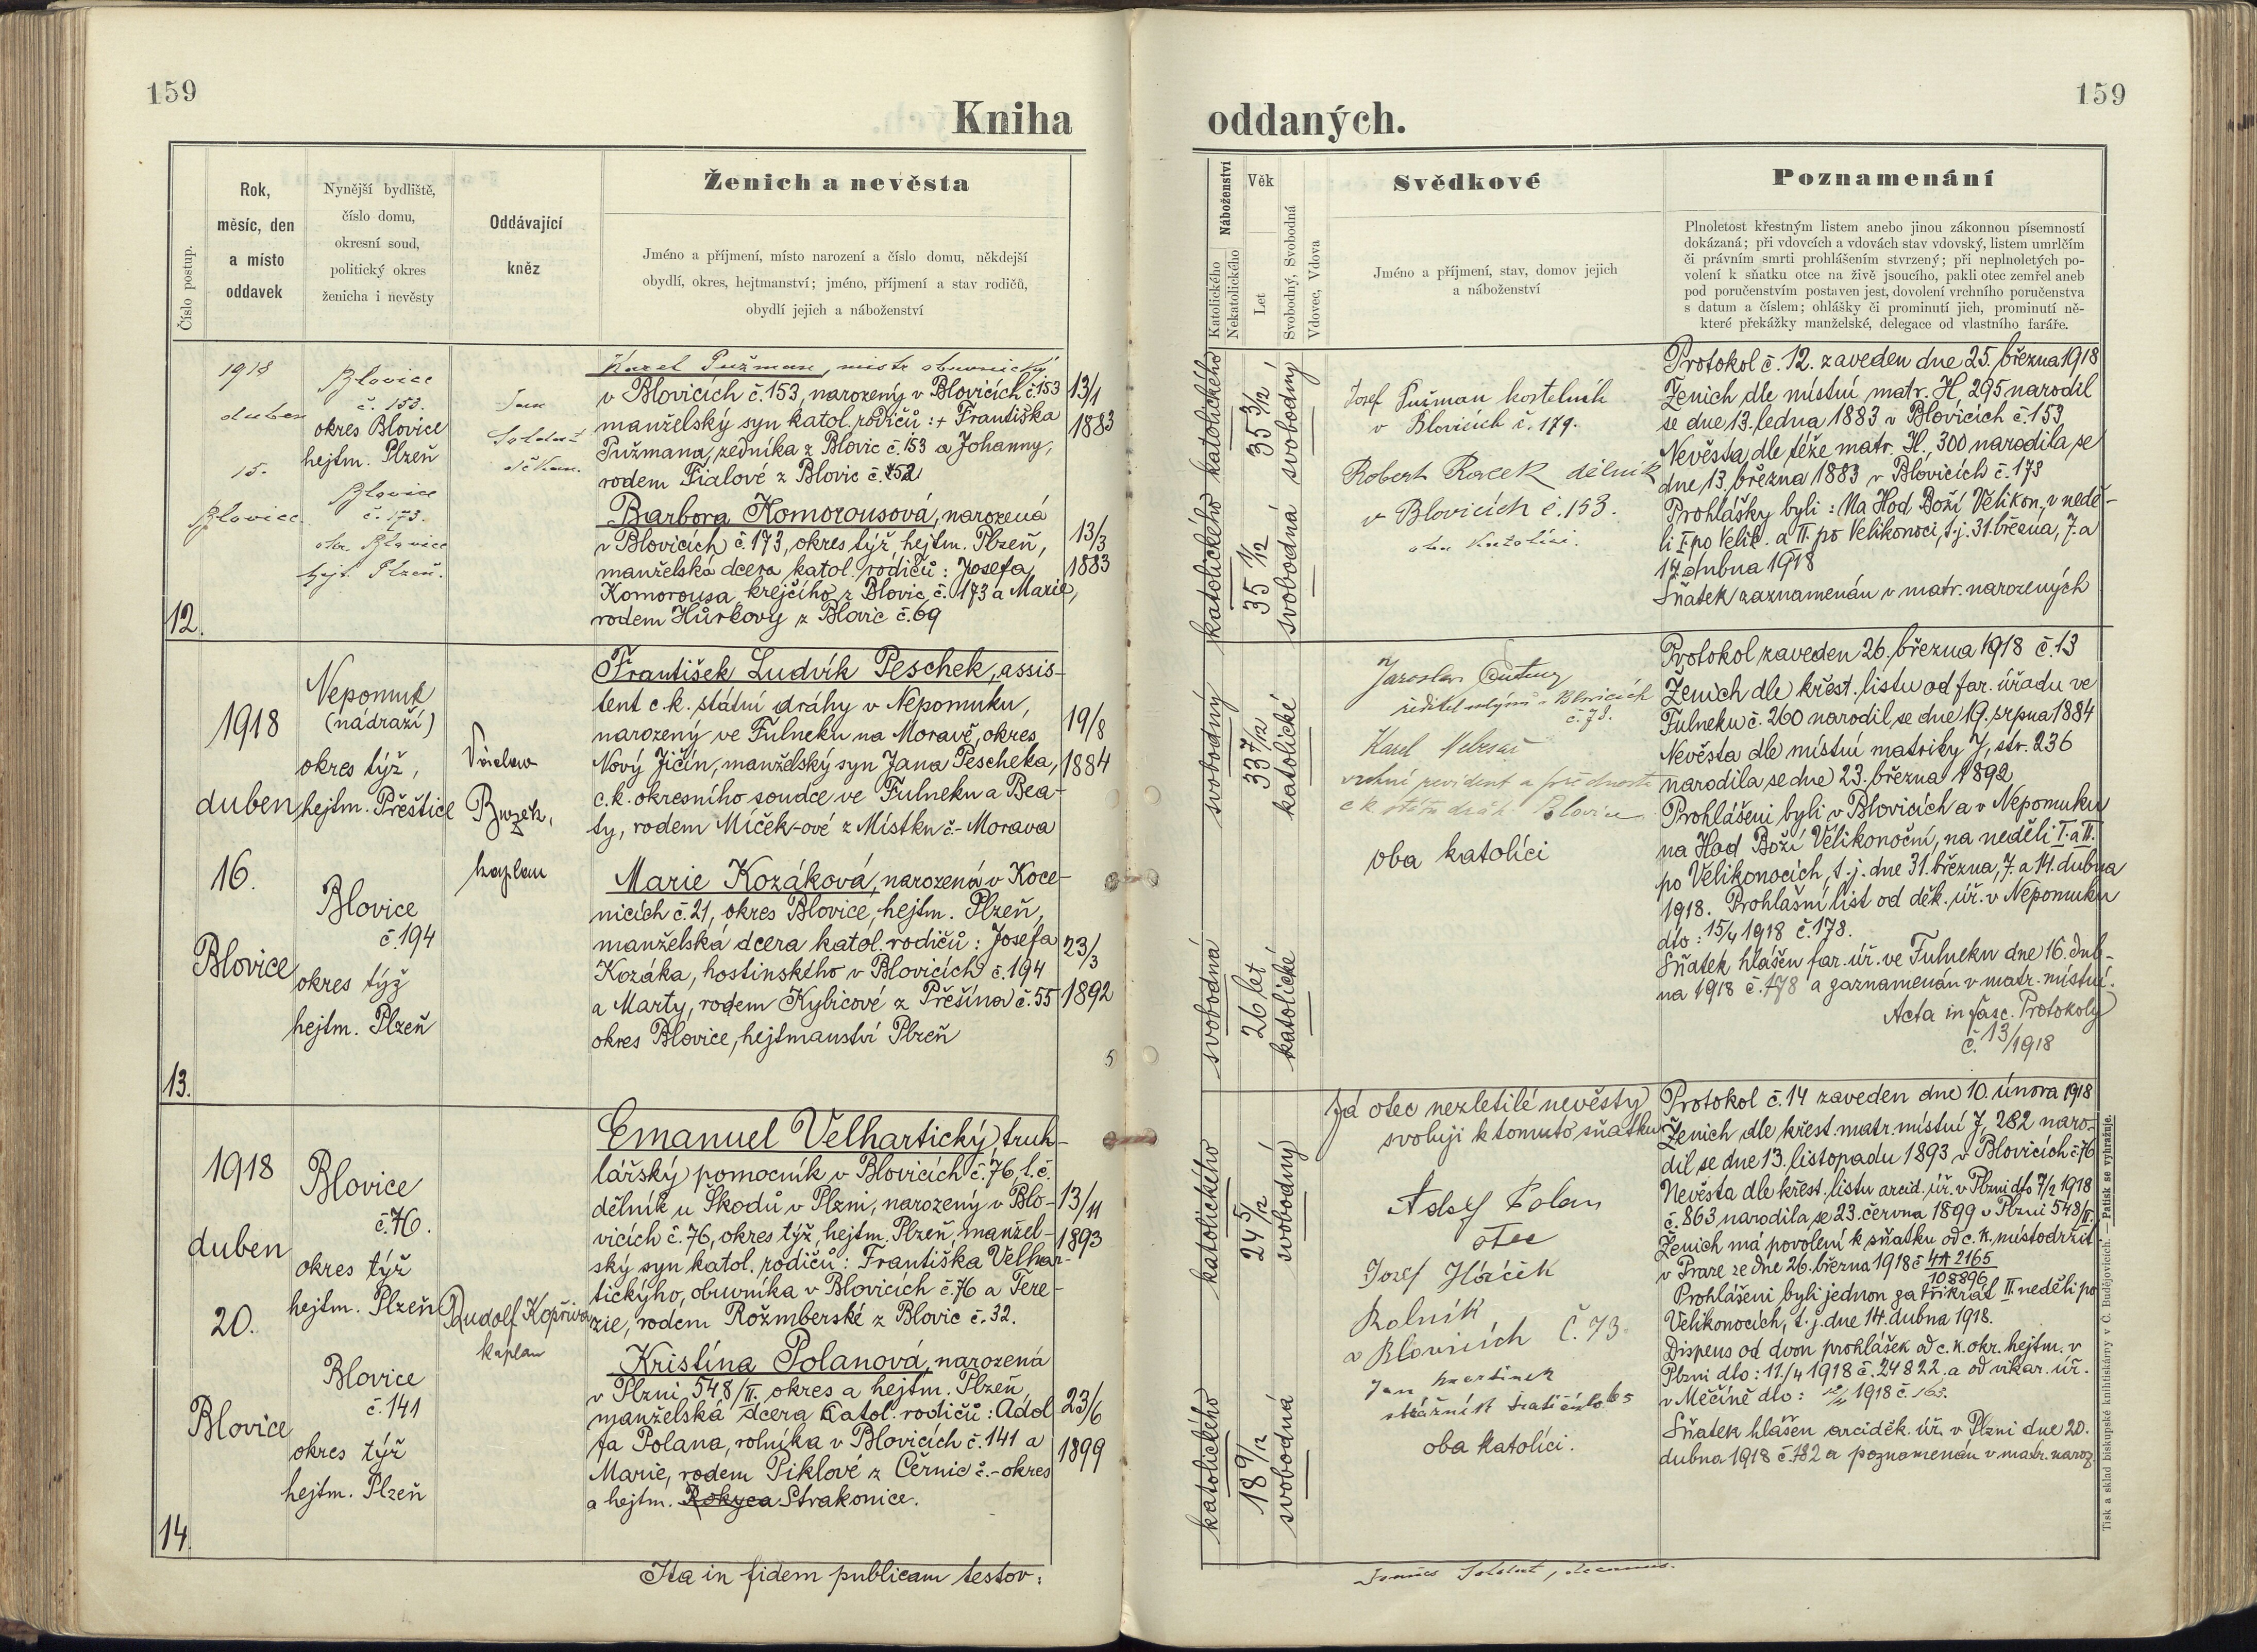 159
Kniha
Číslo postup.
Rok,
měsíc, den
a místo
oddavek
Nynější bydliště,
číslo domu,
okresní soud,
politický okres
ženicha i nevěsty
Oddávající
kněz
Ženich a nevěsta
Jméno a příjmení, místo narození a číslo domu, někdejší
obydlí, okres, hejtmanství; jméno, příjmení a stav rodičů,
obydlí jejich a náboženství
12.
1918
duben
15.
Blovice
Blovice
č. 153.
okres Blovice
hejtm. Plzeň
Blovice
č. 173.
okr. Blovice
hejt. Plzeň.
Jan
Soldát
děkan.
Karel Pužman, mistr obuvnický
v Blovicích č. 153, narozený v Blovicích č. 153
manželský syn katol. rodičů: + Františka
Pužmana, zedníka z Blovic č. 153 a Johanny,
rodem Fialové z Blovic č. 152
13/1
1883
Barbora Komorousová, narozená
v Blovicích č. 173, okres týž, hejtm. Plzeň,
manželská dcera katol. rodičů: Josefa
Komorousa, krejčího z Blovic č. 173 a Marie,
rodem Hůrkovy z Blovic č. 69
13/3
1883
13.
1918
duben
16.
Blovice
Nepomuk
(nádraží)
okres týž,
hejtm. Přeštice
Blovice
č. 194
okres týž
hejtm. Plzeň
Václav
kaplan
František Ludvík Peschek, assis-
tent c. k. státní dráhy v Nepomuku,
narozený ve Fulneku na Moravě, okres
Nový Jičín, manželský syn Jana Pescheka,
c. k. okresního soudce ve Fulneku a Bea-
ty, rodem Míček-ové z Místku č.- Morava
19/8
1884
Marie Kozáková, narozená v Koce-
nicích č. 21, okres Blovice, hejtm. Plzeň,
manželská dcera katol. rodičů: Josefa
Kozáka, hostinského v Blovicích č. 194
a Marty, rodem Kybicové z Přešína č. 55
okres Blovice, hejtmanství Plzeň
23/3
1892
5
14.
1918
duben
20.
Blovice
Blovice
č. 76.
okres týž
hejtm. Plzeň
Blovice
č. 141
okres týž
hejtm. Plzeň
Rudolf Kopřiva
kaplan
Emanuel Velhartický, truh-
lářský pomocník v Blovicích č. 76, t. č.
dělník u Škodů v Plzni, narozený v Blo-
vicích č. 76, okres týž, hejtm. Plzeň, manžel-
ský syn katol. rodičů: Františka Velhar-
tického, obuvníka v Blovicích č. 76 a Tere-
zie, rodem Rožmberské z Blovic č. 32.
13/11
1893
Kristína Polanová, narozená
v Plzni 548/II. okres a hejtm. Plzeň,
manželská dcera katol. rodičů: Adol
fa Polana, rolníka v Blovicích č. 141 a
Marie, rodem Piklové z Černic č.- okres
a hejtm. Rokyca Strakonice.
23/6
1899
Ita in fidem publicam testor:
159
oddaných.
Náboženství
Katolického
Nekatolického
Věk
Let
Svobodný, Svobodná
Vdovec, Vdova
Svědkové
Jméno a příjmení, stav, domov jejich
a náboženství
Poznamenání
Plnoletost křestným listem anebo jinou zákonnou písemností
dokázaná; při vdovcích a vdovách stav vdovský, listem umrlčím
či právním smrti prohlášením stvrzený; při neplnoletých po-
volení k sňatku otce na živě jsoucího, pakli otec zemřel aneb
pod poručenstvím postaven jest, dovolení vrchního poručenstva
s datum a číslem; ohlášky či prominutí jich, prominutí ně-
které překážky manželské, delegace od vlastního faráře.
katolického
35 3/12
svobodný
katolického
35 1/12
svobodná
Josef Pužman kostelník
v Blovicích č. 179.
Robert Racek dělník
v Blovicích č. 153.
oba katolíci.
Protokol č. 12. zaveden dne 25. března 1918
Ženich dle místní matr. H, 295 narodil
se dne 13. ledna 1883 v Blovicích č. 153
Nevěsta dle téže matr. H., 300 narodila se
dne 13. března 1883 v Blovicích č. 173
Prohlášky byli: Na Hod Boží Velikon., v nedě-
li I. po Velik. a II. po Velikonoci, t. j. 31. března, 7. a
14. dubna 1918
Sňatek zaznamenán v matr. narozených
svobodný
33 7/12
katolické
svobodná
26 let
katolické
Jaroslav
ředitel mlýnů v Blovicích
č. 78.
Karel
vrchní revident a přednosta
c k státn drah Blovice
oba katolíci
Protokol zaveden 26. března 1918 č. 13
Ženich dle křest. listu od far. úřadu ve
Fulneku č. 260 narodil se dne 19. srpna 1884
Nevěsta dle místní matriky J, str. 236
narodila se dne 23. března 1892
Prohlášeni byli v Blovicích a v Nepomuku
na Hod Boží Velikonoční, na neděli I. a II.
po Velikonocích, t. j. dne 31. března, 7. a 14. dubna
1918. Prohlašní list od děk. úř. v Nepomuku
dto: 15/4 1918 č. 178.
Sňatek hlášen far. úř. ve Fulneku dne 16. dub-
na 1918 č. 178 a zaznamenán v matr. místní.
Acta in fasc. Protokoly
č. 13/1918
katolického
24 5/12
svobodný
katolického
18 9/12
svobodná
Já otec nezletilé nevěsty
svoluji k tomuto sňatku
Adolf Polan
otec
Josef
Rolník
v Blovicích č. 73.
Jan Martínek
strážník trati číslo 65
oba katolíci.
Protokol č. 14 zaveden dne 10. února 1918
Ženich dle křest. matr. místní J, 282 naro-
dil se dne 13. listopadu 1893 v Blovicích č. 76
Nevěsta dle křest. listu arcid. úř. v Plzni dto 7/2 1918
č. 863 narodila se 23. června 1899 v Plzni 548/II.
Ženich má povolení k sňatku od c. k. místodržit.
v Praze ze dne 26. března 1918 č 4A 2165
108896
Prohlášeni byli jednou za třikrát II. neděli po
Velikonocích, t. j. dne 14. dubna 1918.
Dispens od dvou prohlášek od c. k. okr. hejtm. v
Plzni dto: 11/4 1918 č. 24822 a od vikar. úř.
v Měčíně dto: 1918 č. 163.
Sňatek hlášen arciděk. úř. v Plzni dne 20.
dubna 1918 č. 182 a poznamenán v matr. naroz.
Soldát, decanus.
Tisk a sklad biskupské knihtiskárny v Č. Budějovicích. — Patisk se vyhražuje.